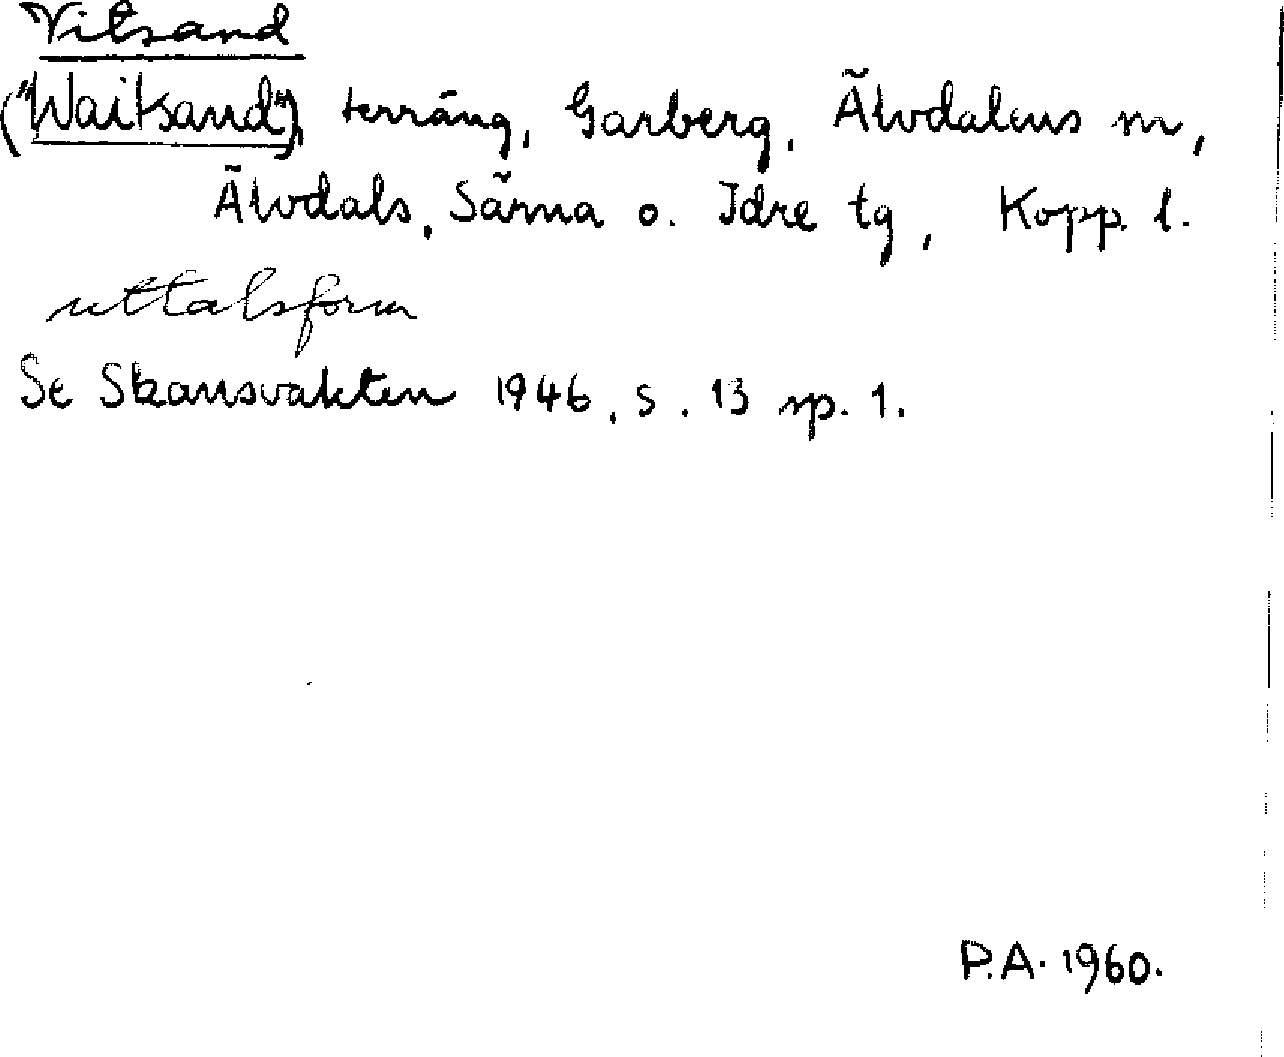 Vitsand
("Waitsand"), terräng, Garberg, Älvdalens sn,
Älvdals, Särna o. Idre tg, Kopp. l.
uttalsform
Se Skansvakten 1946, s. 13 sp. 1.
P.A. 1960.